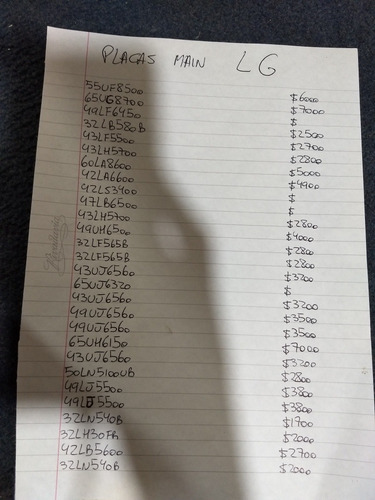 PLACAS MAIN LG
55UF8500 $6000
65UG8700 $7000
49LF6450 $
32LB580B $2500
43LF5500 $2700
43LH5700 $2800
60LA8600 $5000
42LA6600 $4900
42LS3400 $
47LB6500 $
43LH5700 $2800
49UH6500 $4000
32LF565B $2800
32LF565B $2800
43UJ6560 $3200
65UJ6320 $
43UJ6560 $3200
49UJ6560 $3500
49UJ6560 $3500
65UH6150 $7000
43UJ6560 $3200
50LN5100UB $2800
49LJ5500 $3800
49LJ5500 $3800
32LN540B $1700
32LH30FR $2000
42LB5600 $2700
32LN540B $2000